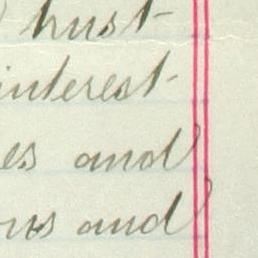 hust-
interest-
es and
ons and